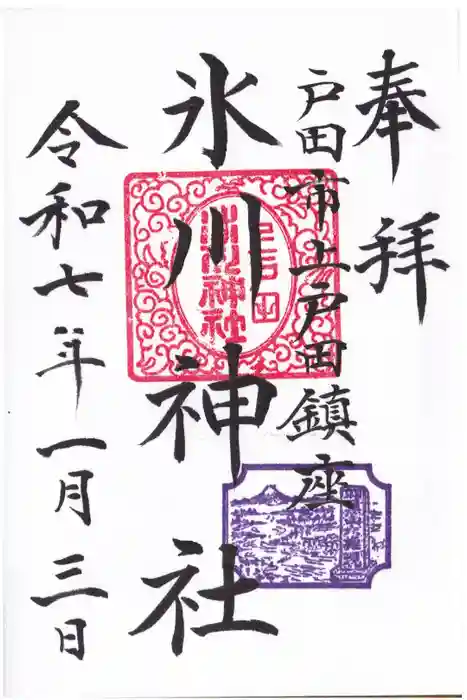 奉拝
戸田市上戸田鎮座
氷川神社
令和七年一月三日